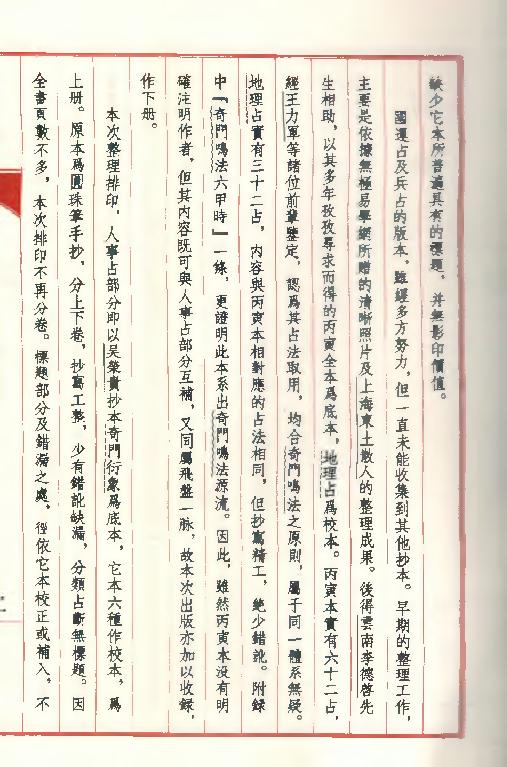 缺少它本所普遍具有的標題，并無影印價值。
國運占及兵占的版本，雖經多方努力，但一直未能收集到其他抄本。早期的整理工作，
主要是依據無極易學網所贈的清晰照片及上海東土散人的整理成果。後得雲南李德啓先
生相助，以其多年孜孜尋求而得的丙寅全本爲底本，地理占爲校本。丙寅本實有六十二占，
經王力軍等諸位前輩鑒定，認爲其占法取用，均合奇門鳴法之原則，屬于同一體系無疑。
地理占實有三十二占，内容與丙寅本相對應的占法相同，但抄寫精工，絶少錯訛。附録
中『奇門鳴法六甲時』一條，更證明此本系出奇門鳴法源流。因此，雖然丙寅本没有明
確注明作者，但其内容既可與人事占部分互補，又同屬飛盤一脉，故本次出版亦加以收録，
作下册。
本次整理排印，人事占部分即以吴榮貴抄本奇門衍象爲底本，它本六種作校本，爲
上册。原本爲圓珠筆手抄，分上下卷，抄寫工整，少有錯訛缺漏，分類占斷無標題。因
全書頁數不多，本次排印不再分卷。標題部分及錯漏之處，徑依它本校正或補入，不